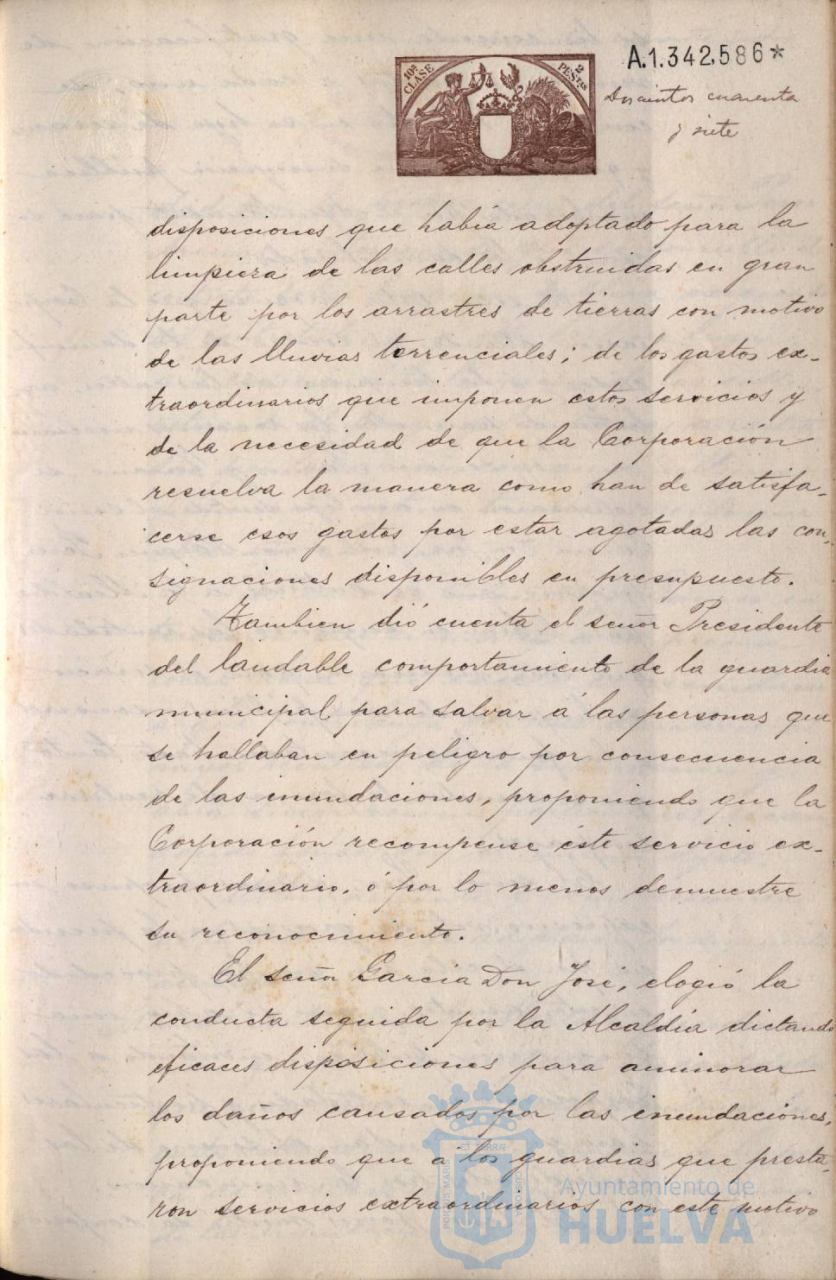 A.1.342,586*
10ª CLASE
2 PESTAS
Doscientos cuarenta
y siete
disposiciones que habia adoptado para la
limpieza de las calles obstruidas en gran
parte por los arrastres de tierras con motivo
de las lluvias torrenciales; de los gastos ex-
traordinarios que imponen estos servicios y
de la necesidad de que la Corporación
resuelva la manera como han de satisfa-
cerse esos gastos por estar agotadas las con-
signaciones disponibles en presupuesto.
Tambien dió cuenta el señor Presidente
del laudable comportamiento de la guardia
municipal para salvar á las personas que
se hallaban en peligro por consecuencia
de las inundaciones, proponiendo que la
Corporación recompense este servicio ex-
traordinario, ó por lo menos demuestre
su reconocimiento.
El señor Garcia Don José, elogió la
conducta seguida por la Alcaldía dictando
eficaces disposiciones para aminorar
los daños causados por las inundaciones,
proponiendo que á los guardias que presta-
ron servicios extraordinarios con este motivo
Ayuntamiento de
HUELVA